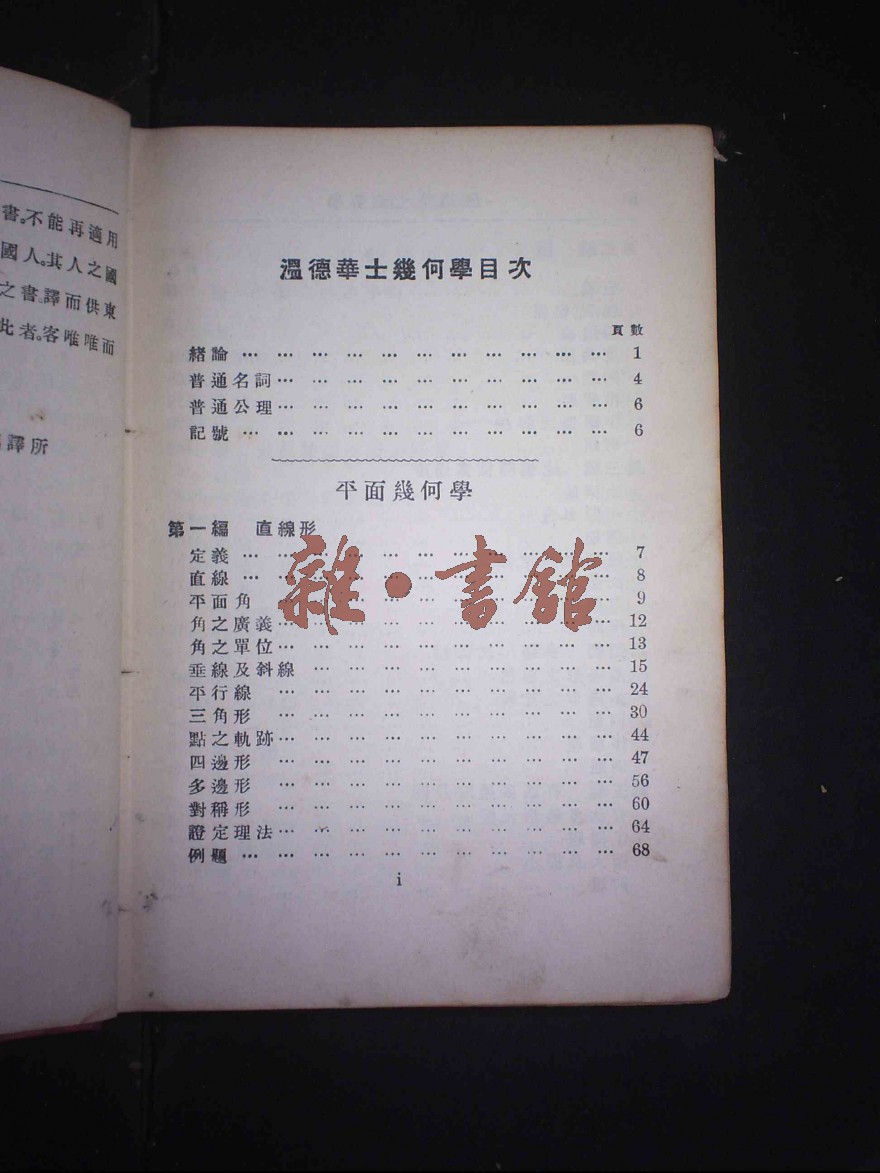 書。不能再適用
國人。其人之國
之書。譯而供東
此者。客唯唯而
譯所
溫德華士幾何學目次
頁數
緒論 … … … … … … … … … … … 1
普通名詞 … … … … … … … … … … 4
普通公理 … … … … … … … … … … 6
記號 … … … … … … … … … … … 6
平面幾何學
第一編 直線形
定義 … … … … … … … … … … … 7
直線 … … … … … … … … … … … 8
平面角 … … … … … … … … … … 9
角之廣義 … … … … … … … … … … 12
角之單位 … … … … … … … … … … 13
垂線及斜線 … … … … … … … … … 15
平行線 … … … … … … … … … … 24
三角形 … … … … … … … … … … 30
點之軌跡 … … … … … … … … … … 44
四邊形 … … … … … … … … … … 47
多邊形 … … … … … … … … … … 56
對稱形 … … … … … … … … … … 60
證定理法 … … … … … … … … … … 64
例題 … … … … … … … … … … … 68
i
雜·書館